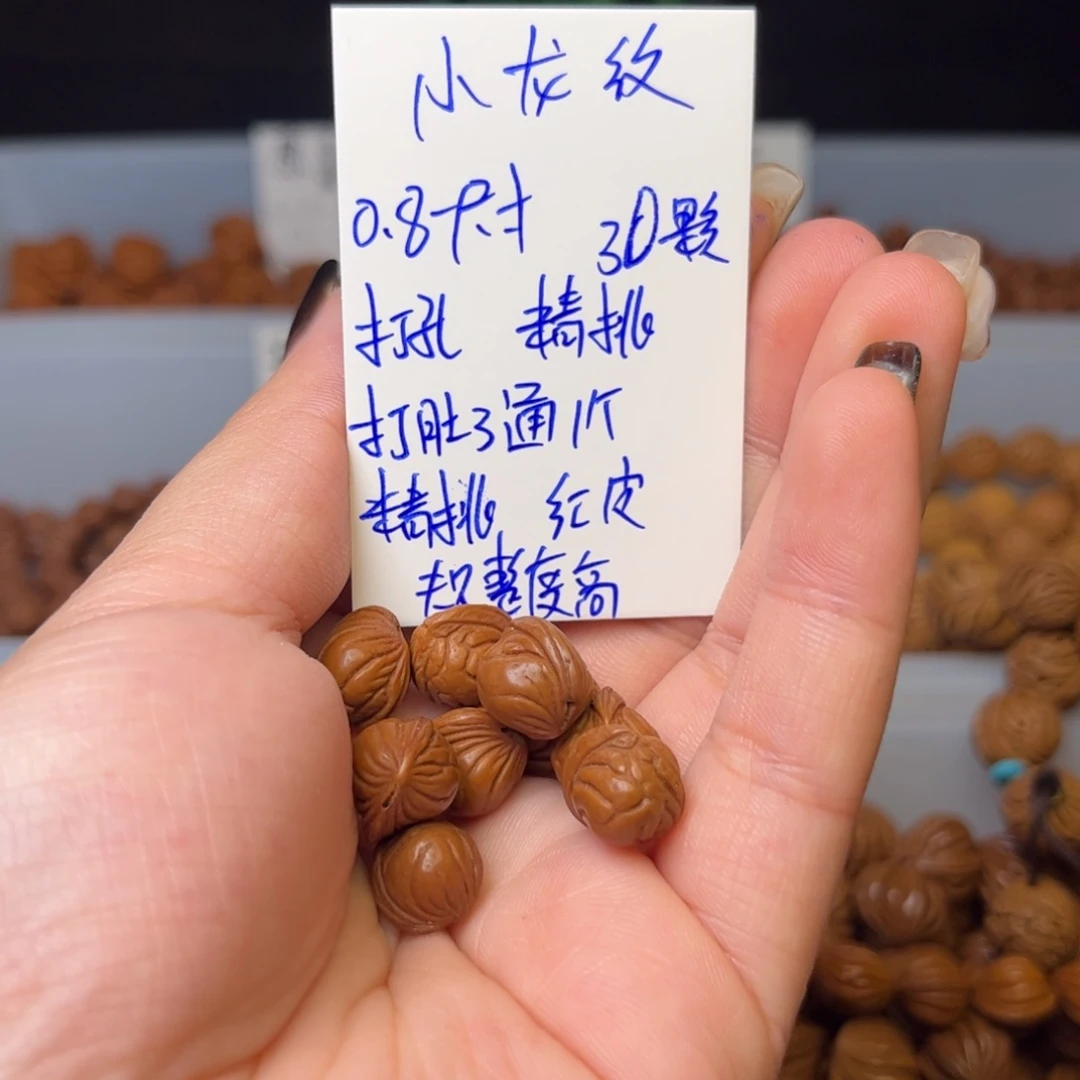 小龙纹
0.8尺寸 30颗
打孔 精挑
打肚3通1片
精挑 红皮
超整度高